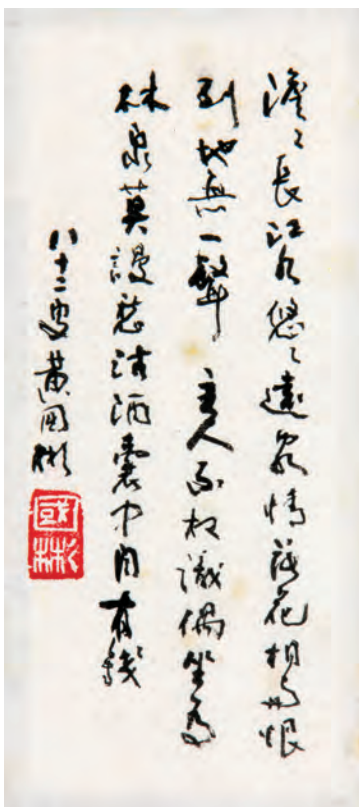 澹〻長江水悠〻遠客情落花相与恨
到地無一聲 主人不相識偶坐為
林泉莫謾愁沽酒囊中自有錢
八十二叟黄國彬
國彬